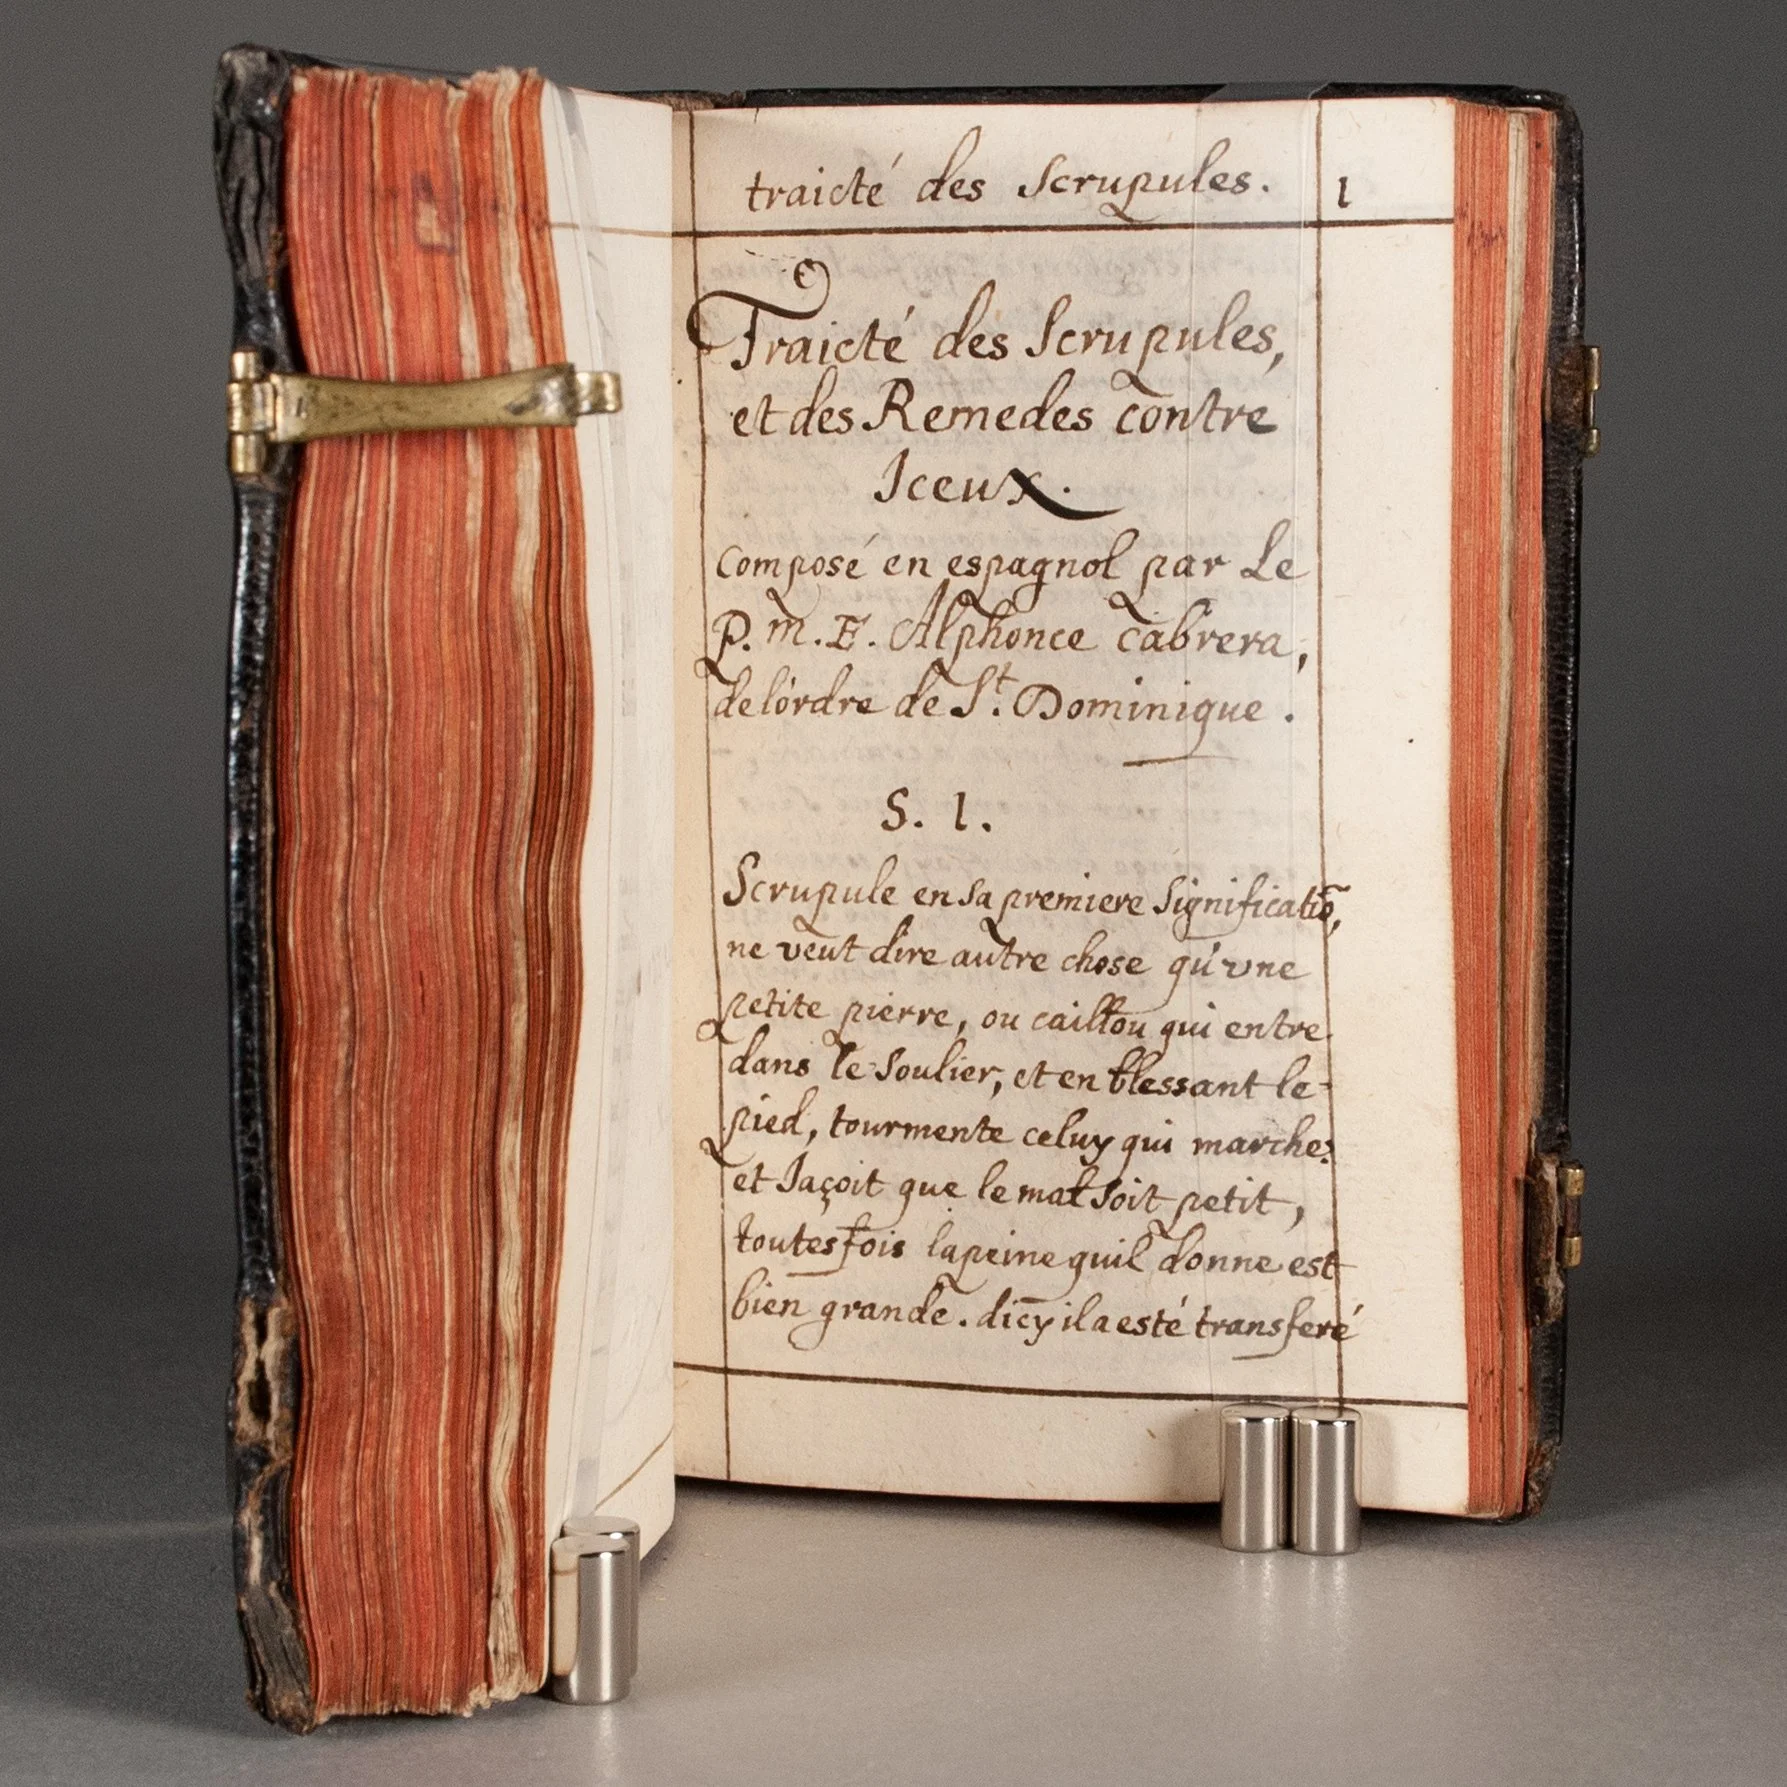 traicté des Scrupules. 1
Traicté des Scrupules,
et des Remedes contre
Iceux.
composé en espagnol par Le
P. m. F. Alphonce cabrera,
delórdre de St. Dominique.
S. 1.
Scrupule en sa premiere significatiõ,
ne veut dire autre chose qu'vne
petite pierre, ou caillou qui entre
dans le soulier, et en blessant le-
pied, tourmente celuy qui marche:
et Jaçoit que le mal soit petit,
toutesfois la peine quil donne est
bien grande. dicy il a esté transferé